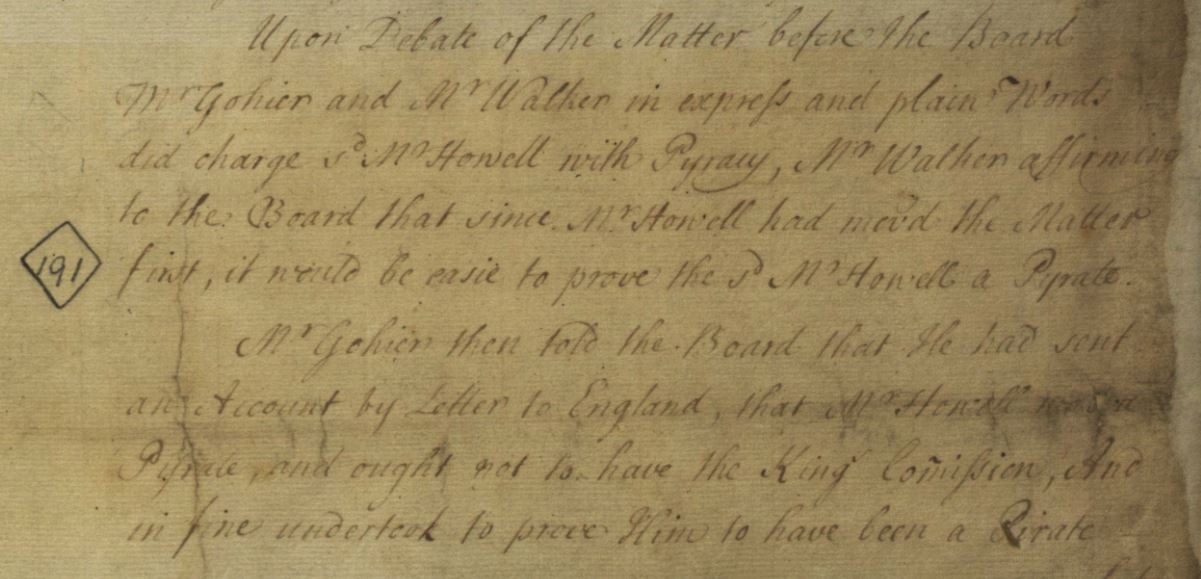 Upon Debate of the Matter before the Board
Mr Gohier and Mr Walker in express and plain Words
did charge sd Mr Howell with Pyracy, Mr Walker affirming
to the Board that since Mr Howell had mov'd the Matter
191
first, it would be easie to prove the sd Mr Howell a Pyrate.
Mr Gohier then told the Board that He had sent
an Account by Letter to England, that Mr Howell was a
Pyrate, and ought not to have the Kings Com̃ission, And
in fine undertook to prove Him to have been a Pirate